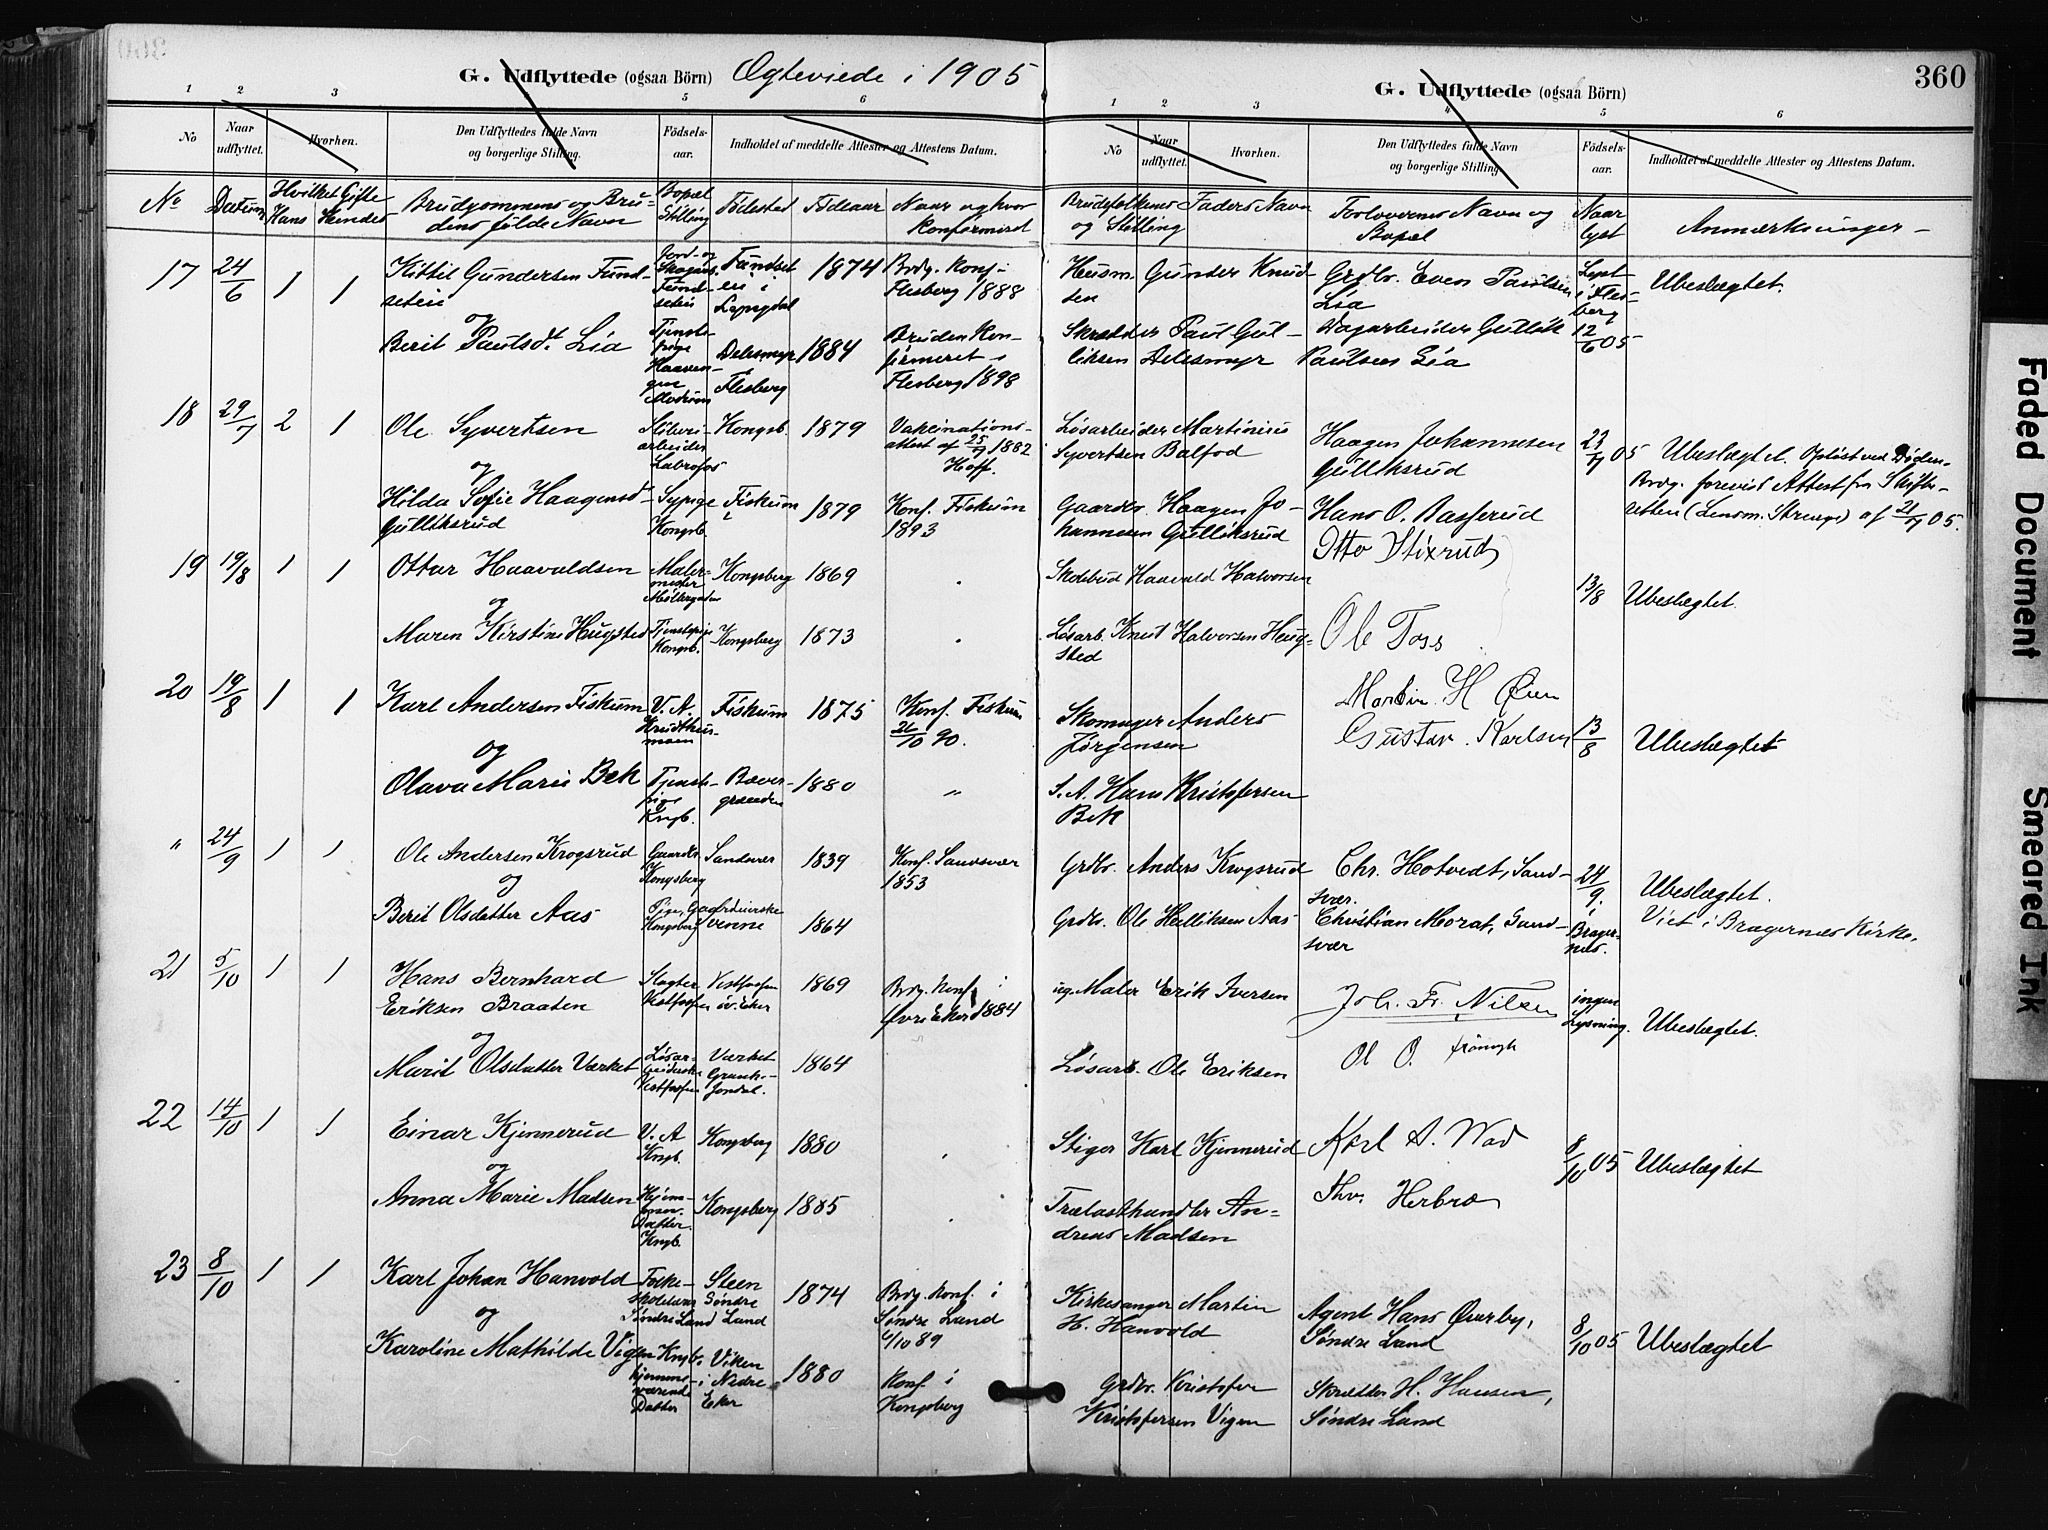 G. Udflyttede (ogsaa Börn) Ægteviede i 1905
G. Udflyttede (ogsaa Börn)
360
1 2 3 4 5 6
1 2 3 4 5 6
No Naar udflyttet. Hvorhen. Den Udflyttedes fulde Navn og borgerlige Stilling. Födselsaar. Indholdet af meddelte Attester og Attestens Datum.
No Naar udflyttet. Hvorhen. Den Udflyttedes fulde Navn og borgerlige Stilling. Födselsaar. Indholdet af meddelte Attester og Attestens Datum.
No Datum Hvilket Gifte Hans Hendes Brudgommens og Brudens fulde Navn Bopæl Stilling Födested Födeaar Naar og hvor konfirmird
Brudefolkenes Faders Navn og Stilling Forlovernes Navn og Bopæl Naar lyst Anmærkninger
17 24/6 1 1 Kittil Gundersen Fundseteie Fundseteie i Lyngdal 1874 Brdg. konf. i Flesberg 1888 Husm. Gunder Knudsen Grdbr. Even Paulsen Lia Lyst i Flesberg 12/6 05 Ubeslægtet.
og
Berit Paulsdt. Lia Delesmyr Flesberg 1884 Bruden konfirmeret i Flesberg 1898 Skrædder Paul Gulliksen Delesmyr Dagarbeider Gullik Paulsen Lia
18 29/7 2 1 Ole Syvertsen Labrofos Kongsb. 1879 Vakcinationsattest af 25/9 1882 Hoff. Løsarbeider Martinius Syvertsen Balfod Haagen Johannesen Gulliksrud 23/7 05 Ubeslægtet. Opløst ved Døden. Brdg. forevist Attest fra Skifteretten (Lensm. Strenge) af 21/7 05.
og
Hilda Sofie Haagensd. Gulliksrud Sypige Kongsb. Fiskum 1879 Konf. Fiskum 1893 Gaardbr. Haagen Johannesen Gulliksrud Hans O. Basserud
19 19/8 1 1 Ottar Haavaldsen Malermester Møllergaden Kongsberg 1869 Skolebud Haavald Halvorsen Otto Stixrud 13/8 Ubeslægtet.
og
Maren Kirstine Hugsted Tjenstepige Kongsb. Kongsberg 1873 Løsarb. Knut Halvorsen Haugsted Ole Foss
20 19/8 1 1 Karl Andersen Fiskum V. A. Fiskum 1875 Konf. Fiskum 26/10 90. Skomager Anders Jørgensen Martin H Øen Gustav Karlsen 13/8 Ubeslægtet
og
Olava Marie Bek Tjenstepige Kngb. Bævergrænden 1880 " S. A. Hans Kristofersen Bek
" 24/9 1 1 Ole Andersen Krogsrud Gaardbr. Kongsberg Sandsvær 1839 Konf. Sandsvær 1853 Grdbr. Anders Krogsrud Chr. Hotvedt, Sandsvær. 24/9. i Bragernes. Ubeslægtet. Viet i Bragernes Kirke.
og
Berit Olsdatter Aas Pige, Kongsberg 1864 Grdbr. Ole Helliksen Aas Christian Morat, Sandsvær
21 5/10 1 1 Hans Bernhard Eriksen Braaten Slagter Vestfossen Vestfossen øv. Eker 1869 Brdg. Konf. i Øvre Eker 1884 ug. Maler Erik Iversen Joh. Fr. Nilsen ingen Lysning. Ubeslægtet.
og
Marit Olsdatter Værket Løsarbeiderske Vestfossen Værket Jondal. 1864 Løsarb. Ole Eriksen Ol O.
22 14/10 1 1 Einar Kjennerud V. A Kngb. Kongsberg 1880 Stiger Karl Kjennerud Karl A. Wad 8/10 05 Ubeslægtet
og
Anna Marie Madsen Datter. Kngb. Kongsberg 1885 Trælasthandler Andreas Madsen Thv. Herbro
23 8/10 1 1 Karl Johan Hanvold Folkeskolelærer Søndre Land Steen Søndre Land 1874 Brdg. konf. i Søndre Land 6/10 89 Kirkesanger Martin H. Hanvold Agent Hans Øverby, Søndre Land 8/10 05 Ubeslægtet
og
Karoline Mathilde Vigen Kngb. hjemmeværende Datter Viken i Nedre Eker 1880 Konf. i Kongsberg Grdbr. Kristofer Kristofersen Vigen Skrædder H. Hansen, Søndre Land
Faded Document
Smeared Ink